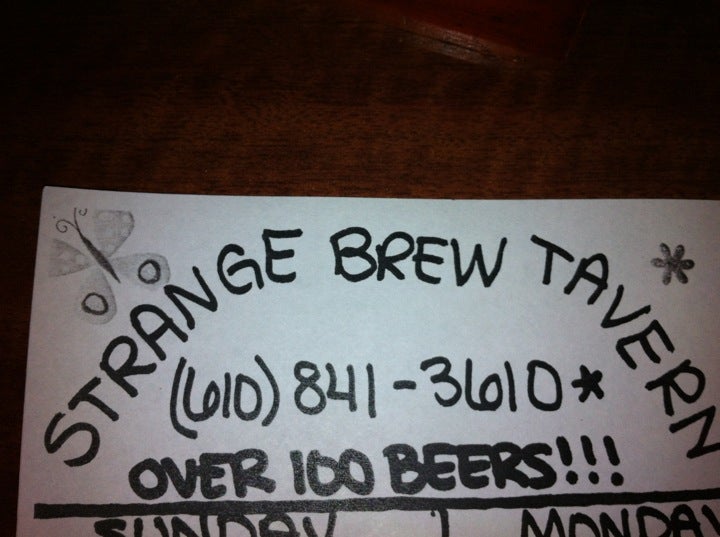 STRANGE BREW TAVERN
(610) 841-3610*
OVER 100 BEERS!!!
SUNDAY MONDAY